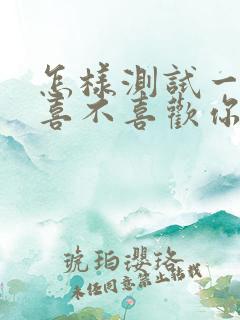 怎樣測試一
喜不喜歡你
琥珀瓔珞
未经同意禁止转载